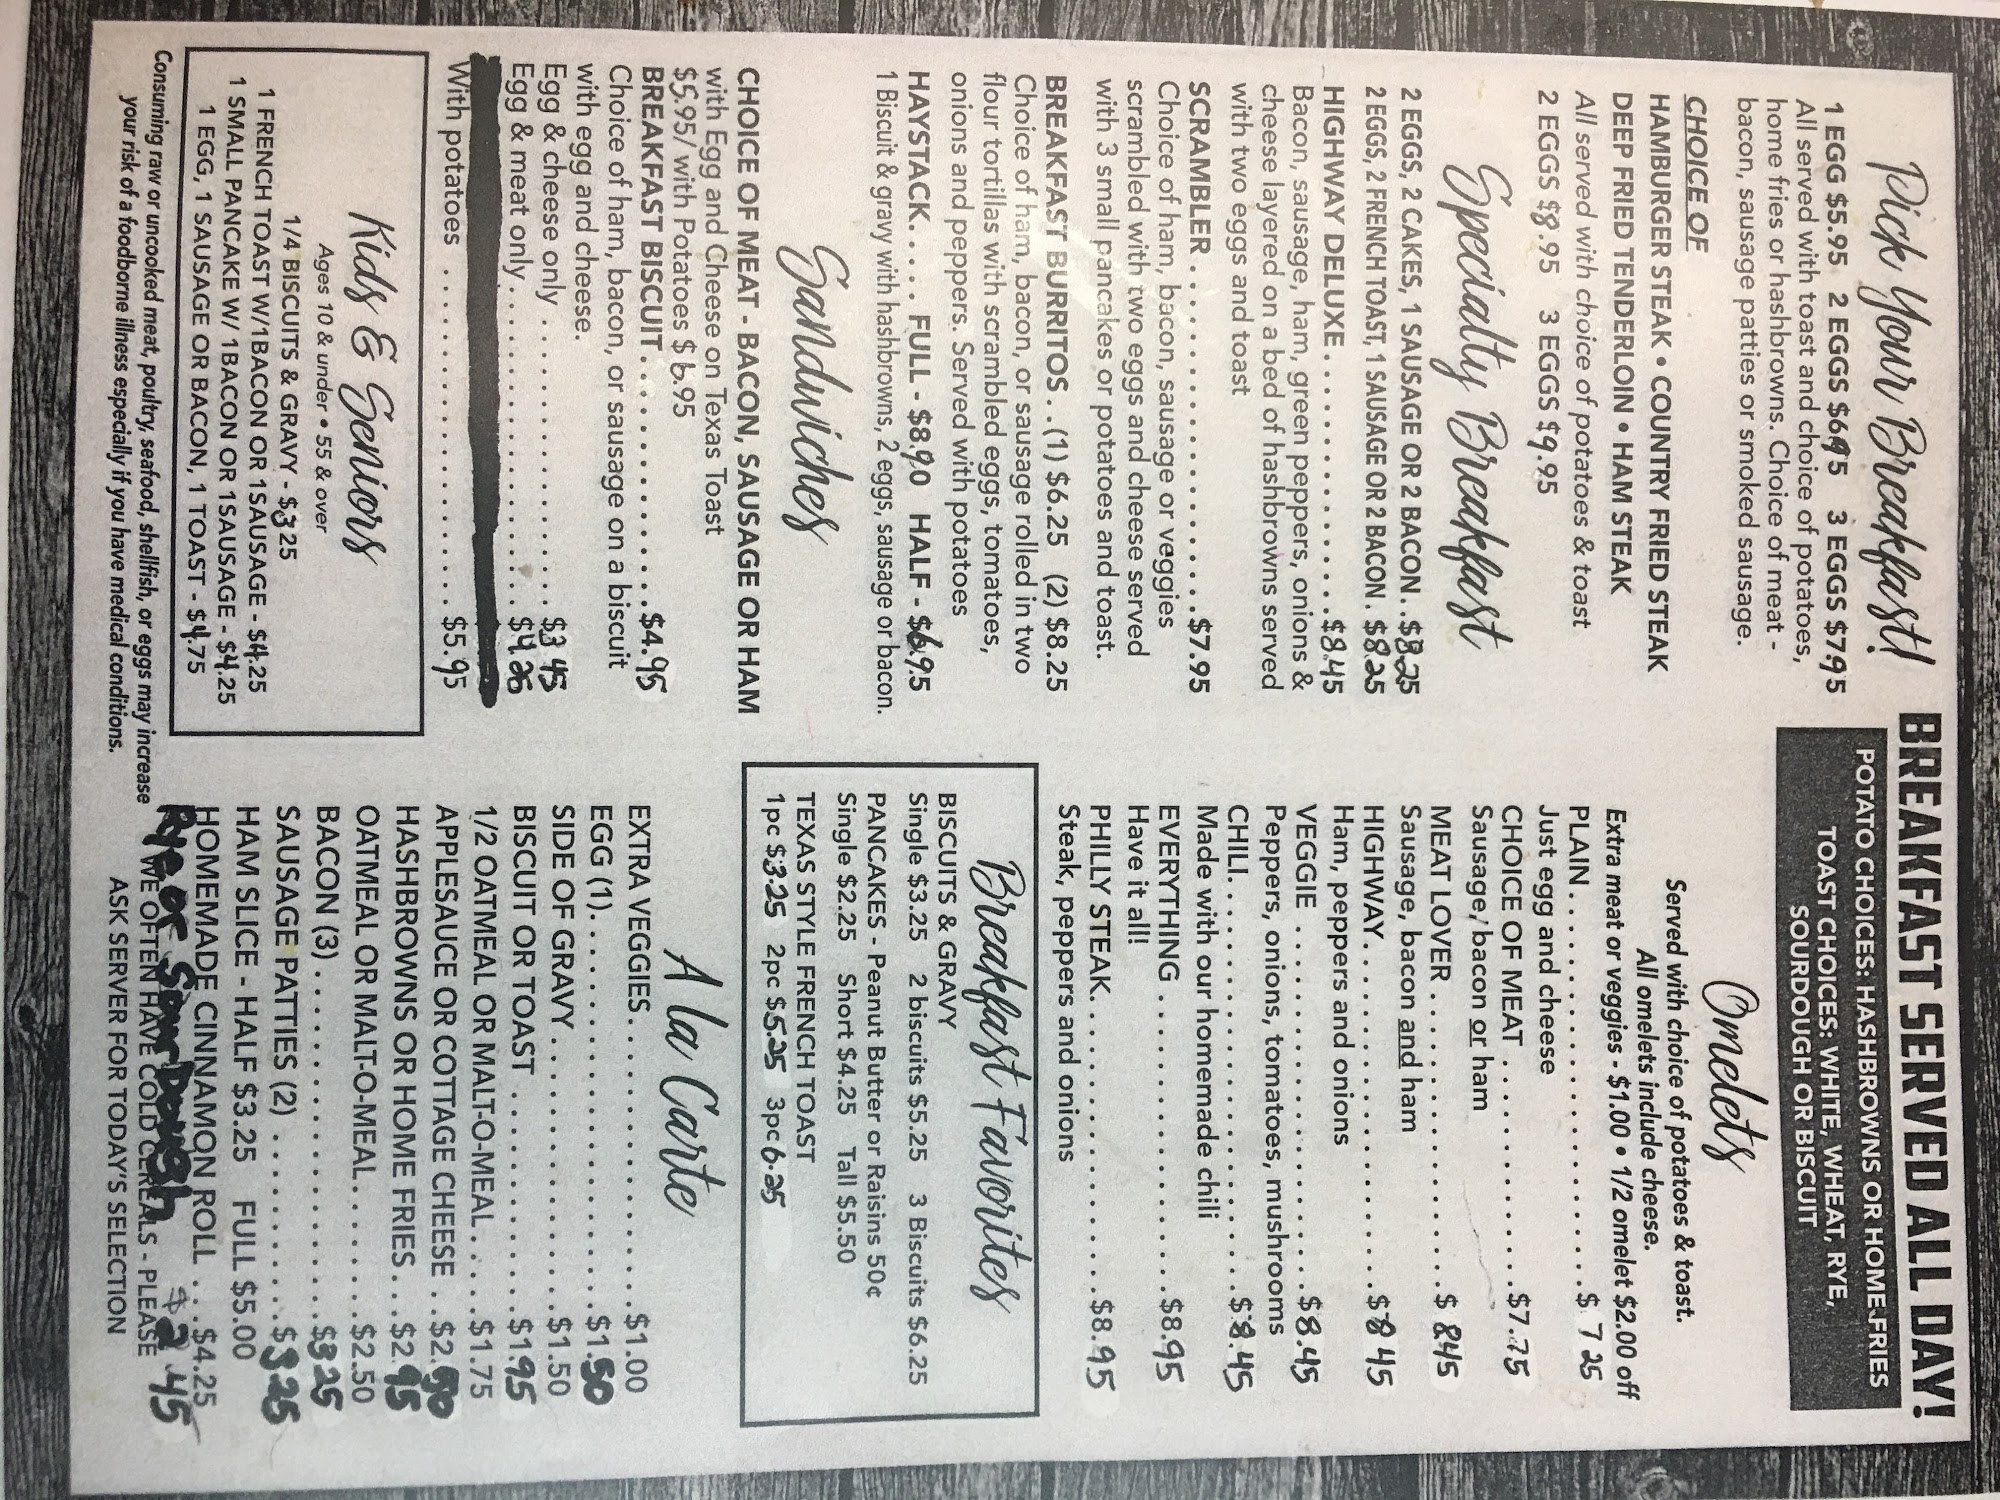 BREAKFAST SERVED ALL DAY!
POTATO CHOICES: HASHBROWNS OR HOME FRIES
TOAST CHOICES: WHITE, WHEAT, RYE,
SOURDOUGH OR BISCUIT
Pick Your Breakfast!
1 EGG $5.95 2 EGGS $6.95 3 EGGS $7.95
All served with toast and choice of potatoes,
home fries or hashbrowns. Choice of meat -
bacon, sausage patties or smoked sausage.
CHOICE OF
HAMBURGER STEAK • COUNTRY FRIED STEAK
DEEP FRIED TENDERLOIN • HAM STEAK
All served with choice of potatoes & toast
2 EGGS $8.95 3 EGGS $9.95
Specialty Breakfast
2 EGGS, 2 CAKES, 1 SAUSAGE OR 2 BACON..$8.25
2 EGGS, 2 FRENCH TOAST, 1 SAUSAGE OR 2 BACON. $8.25
HIGHWAY DELUXE....................$8.45
Bacon, sausage, ham, green peppers, onions &
cheese layered on a bed of hashbrowns served
with two eggs and toast
SCRAMBLER........................$7.95
Choice of ham, bacon, sausage or veggies
scrambled with two eggs and cheese served
with 3 small pancakes or potatoes and toast.
BREAKFAST BURRITOS ..(1) $6.25 (2) $8.25
Choice of ham, bacon, or sausage rolled in two
flour tortillas with scrambled eggs, tomatoes,
onions and peppers. Served with potatoes
HAYSTACK..... FULL - $8.90 HALF - $6.95
1 Biscuit & gravy with hashbrowns, 2 eggs, sausage or bacon.
Sandwiches
CHOICE OF MEAT - BACON, SAUSAGE OR HAM
with Egg and Cheese on Texas Toast
$5.95/ with Potatoes $6.95
BREAKFAST BISCUIT.................$4.95
Choice of ham, bacon, or sausage on a biscuit
with egg and cheese.
Egg & cheese only ...................... $3.45
Egg & meat only........................
With potatoes .......................... $5.95
Kids & Seniors
Ages 10 & under • 55 & over
1/4 BISCUITS & GRAVY - $3.25
1 FRENCH TOAST W/1BACON OR 1SAUSAGE - $4.25
1 SMALL PANCAKE W/ 1BACON OR 1SAUSAGE - $4.25
1 EGG, 1 SAUSAGE OR BACON, 1 TOAST - $4.75
Consuming raw or uncooked meat, poultry, seafood, shellfish, or eggs may increase
your risk of a foodborne illness especially if you have medical conditions.
Omelets
Served with choice of potatoes & toast.
All omelets include cheese.
Extra meat or veggies - $1.00 • 1/2 omelet $2.00 off
PLAIN.............................$ 7 25
Just egg and cheese
CHOICE OF MEAT ...................$7.75
Sausage/bacon or ham
MEAT LOVER ......................$ 8.45
Sausage, bacon and ham
HIGHWAY..........................$ 8 45
Ham, peppers and onions
VEGGIE ...........................$8.45
Peppers, onions, tomatoes, mushrooms
CHILI..............................$8.45
Made with our homemade chili
EVERYTHING .......................$8.95
Have it all!
PHILLY STEAK.......................$8.95
Steak, peppers and onions
Breakfast Favorites
BISCUITS & GRAVY
Single $3.25 2 biscuits $5.25 3 Biscuits $6.25
PANCAKES - Peanut Butter or Raisins 50¢
Single $2.25 Short $4.25 Tall $5.50
TEXAS STYLE FRENCH TOAST
1pc $3.25 2pc $5.25 3pc 6.25
A la Carte
EXTRA VEGGIES.....................$1.00
EGG (1)............................$1.50
SIDE OF GRAVY.....................$1.50
BISCUIT OR TOAST...................$1.95
1/2 OATMEAL OR MALT-O-MEAL.......$1.75
APPLESAUCE OR COTTAGE CHEESE ..$2.50
HASHBROWNS OR HOME FRIES...$2.95
OATMEAL OR MALT-O-MEAL.........$2.50
BACON (3)..........................$3.25
SAUSAGE PATTIES (2) ................$3.25
HAM SLICE - HALF $3.25 FULL $5.00
HOMEMADE CINNAMON ROLL ...$4.25
Rye or Sour Dough $2.45
WE OFTEN HAVE COLD CEREALS - PLEASE
ASK SERVER FOR TODAY'S SELECTION